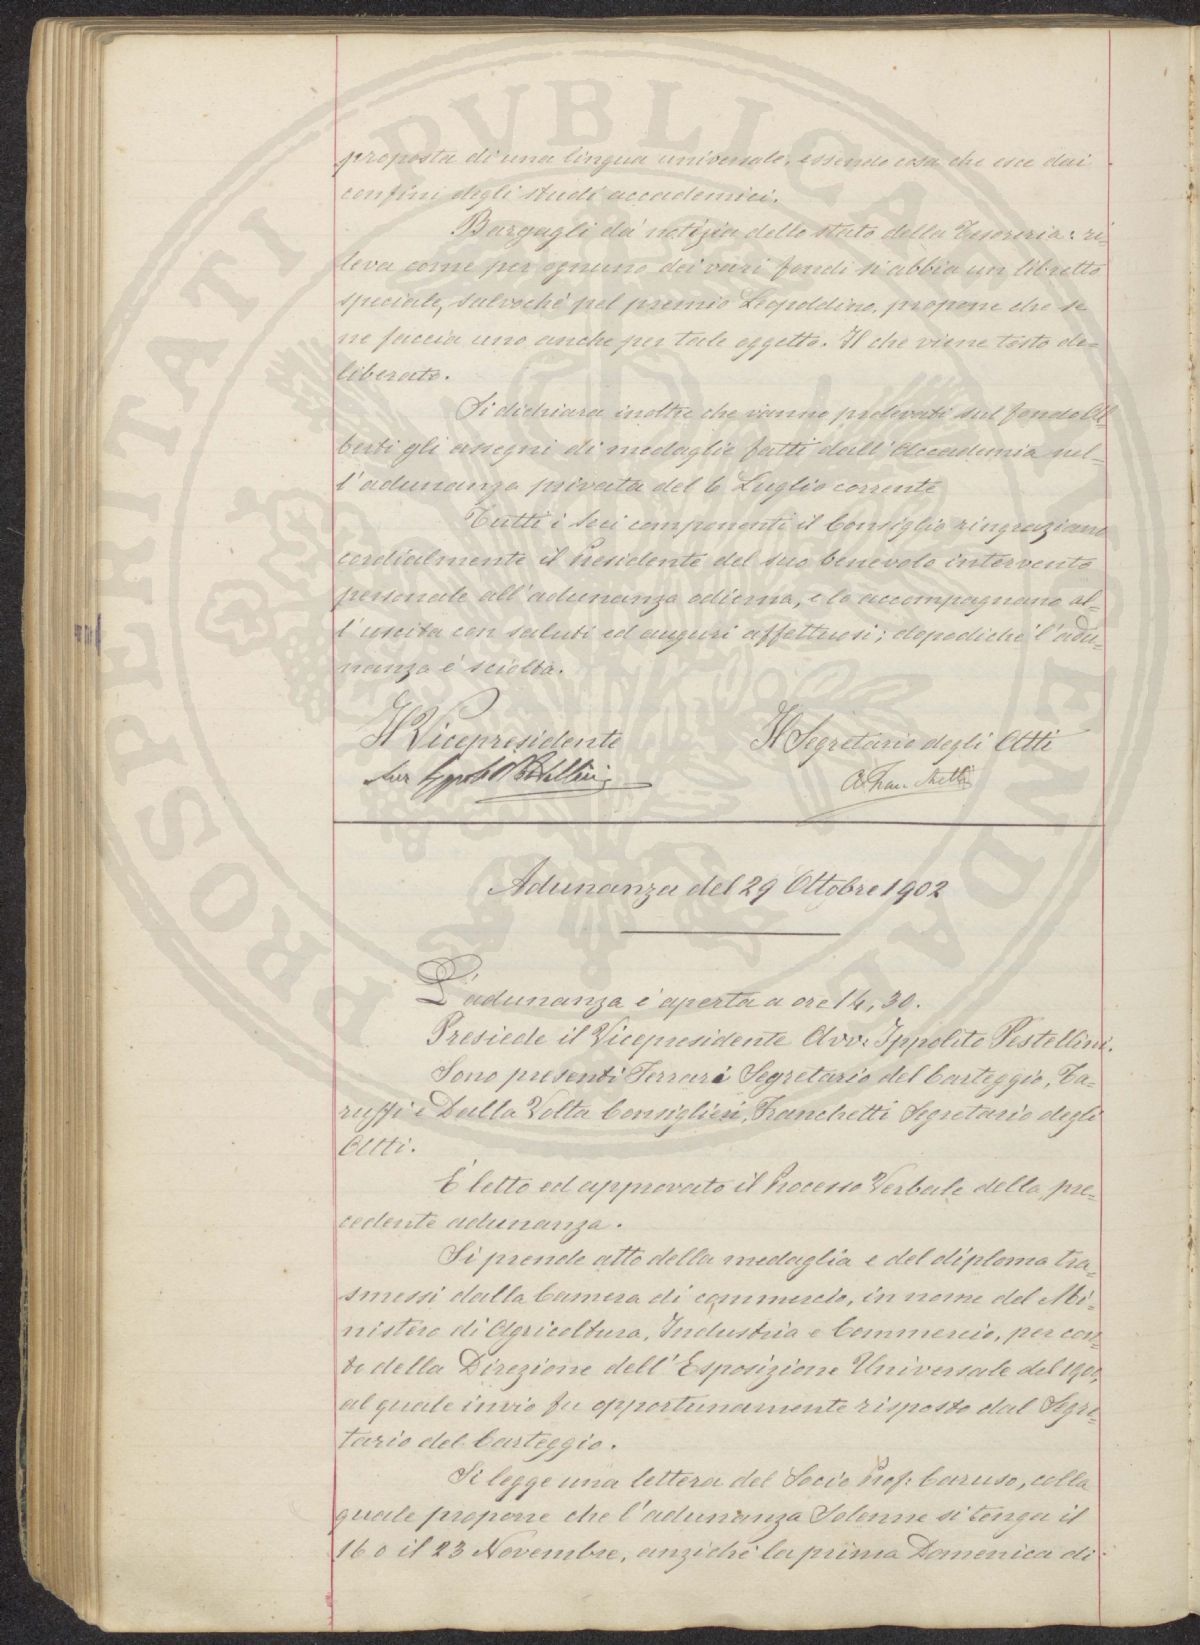 proposta di una lingua universale, essendo cosa che esce dai
confini degli studi accademici.
Bargagli dà notizia dello stato della Tesoreria: ri-
leva come per ognuno dei vari fondi si abbia un libretto
speciale, salvochè pel premio Leopoldino, propone che se
ne faccia uno anche per tale oggetto. Il che viene tosto de-
liberato.
Si dichiara inoltre che vanno prelevati sul fondo Al-
berti gli assegni di medaglie fatti dall'Accademia nel-
l'adunanza privata del 6 Luglio corrente
Tutti i Soci componenti il Consiglio ringraziano
cordialmente il Presidente del suo benevolo intervento
personale all'adunanza odierna, e lo accompagnano al-
l'uscita con saluti ed auguri affettuosi; dopodichè l'adu-
nanza è sciolta.
Il Vicepresidente
Il Segretario degli Atti
Adunanza del 29 Ottobre 1902
L'adunanza è aperta a ore 14,30.
Presiede il Vicepresidente Avv: Ippolito Pestellini.
Sono presenti Ferrari Segretario del Carteggio, Ta-
ruffi e Dalla Volta Consiglieri, Franchetti Segretario degli
Atti.
È letto ed approvato il Processo Verbale della pre-
cedente adunanza.
Si prende atto della medaglia e del diploma tra-
smessi dalla Camera di commercio, in nome del Mi-
nistero di Agricoltura, Industria e Commercio, per con-
to della Direzione dell'Esposizione Universale del 1900,
al quale invio fu opportunamente risposto dal Segre-
tario del Carteggio.
Si legge una lettera del Socio Prof: Caruso, colla
quale propone che l'adunanza Solenne si tenga il
16 o il 23 Novembre, anzichè la prima Domenica di
PROSPERITATI PVBLICAE AVGENDAE